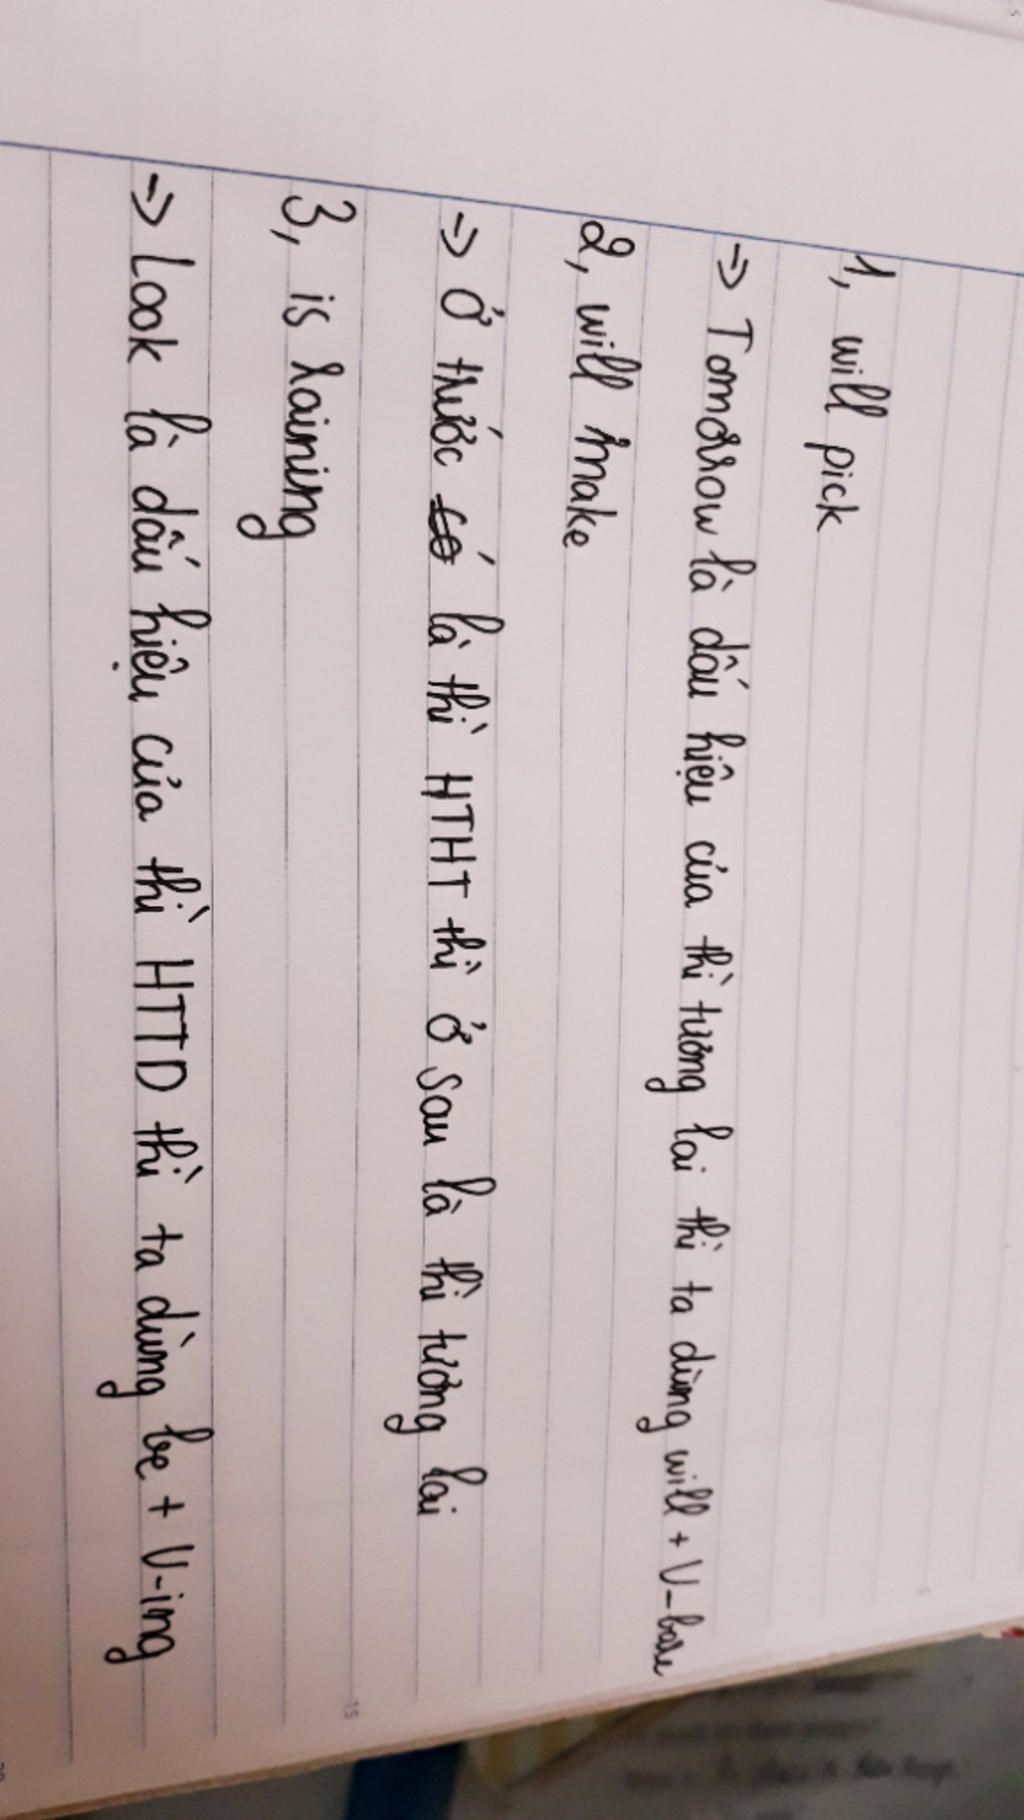 1, will pick
=> Tomorrow là dấu hiệu của thì tương lai thì ta dùng will + V-bare
2, will make
=> Ở trước là thì HTHT thì ở sau là thì tương lai
3, is raining
=> Look là dấu hiệu của thì HTTD thì ta dùng be + V-ing
15